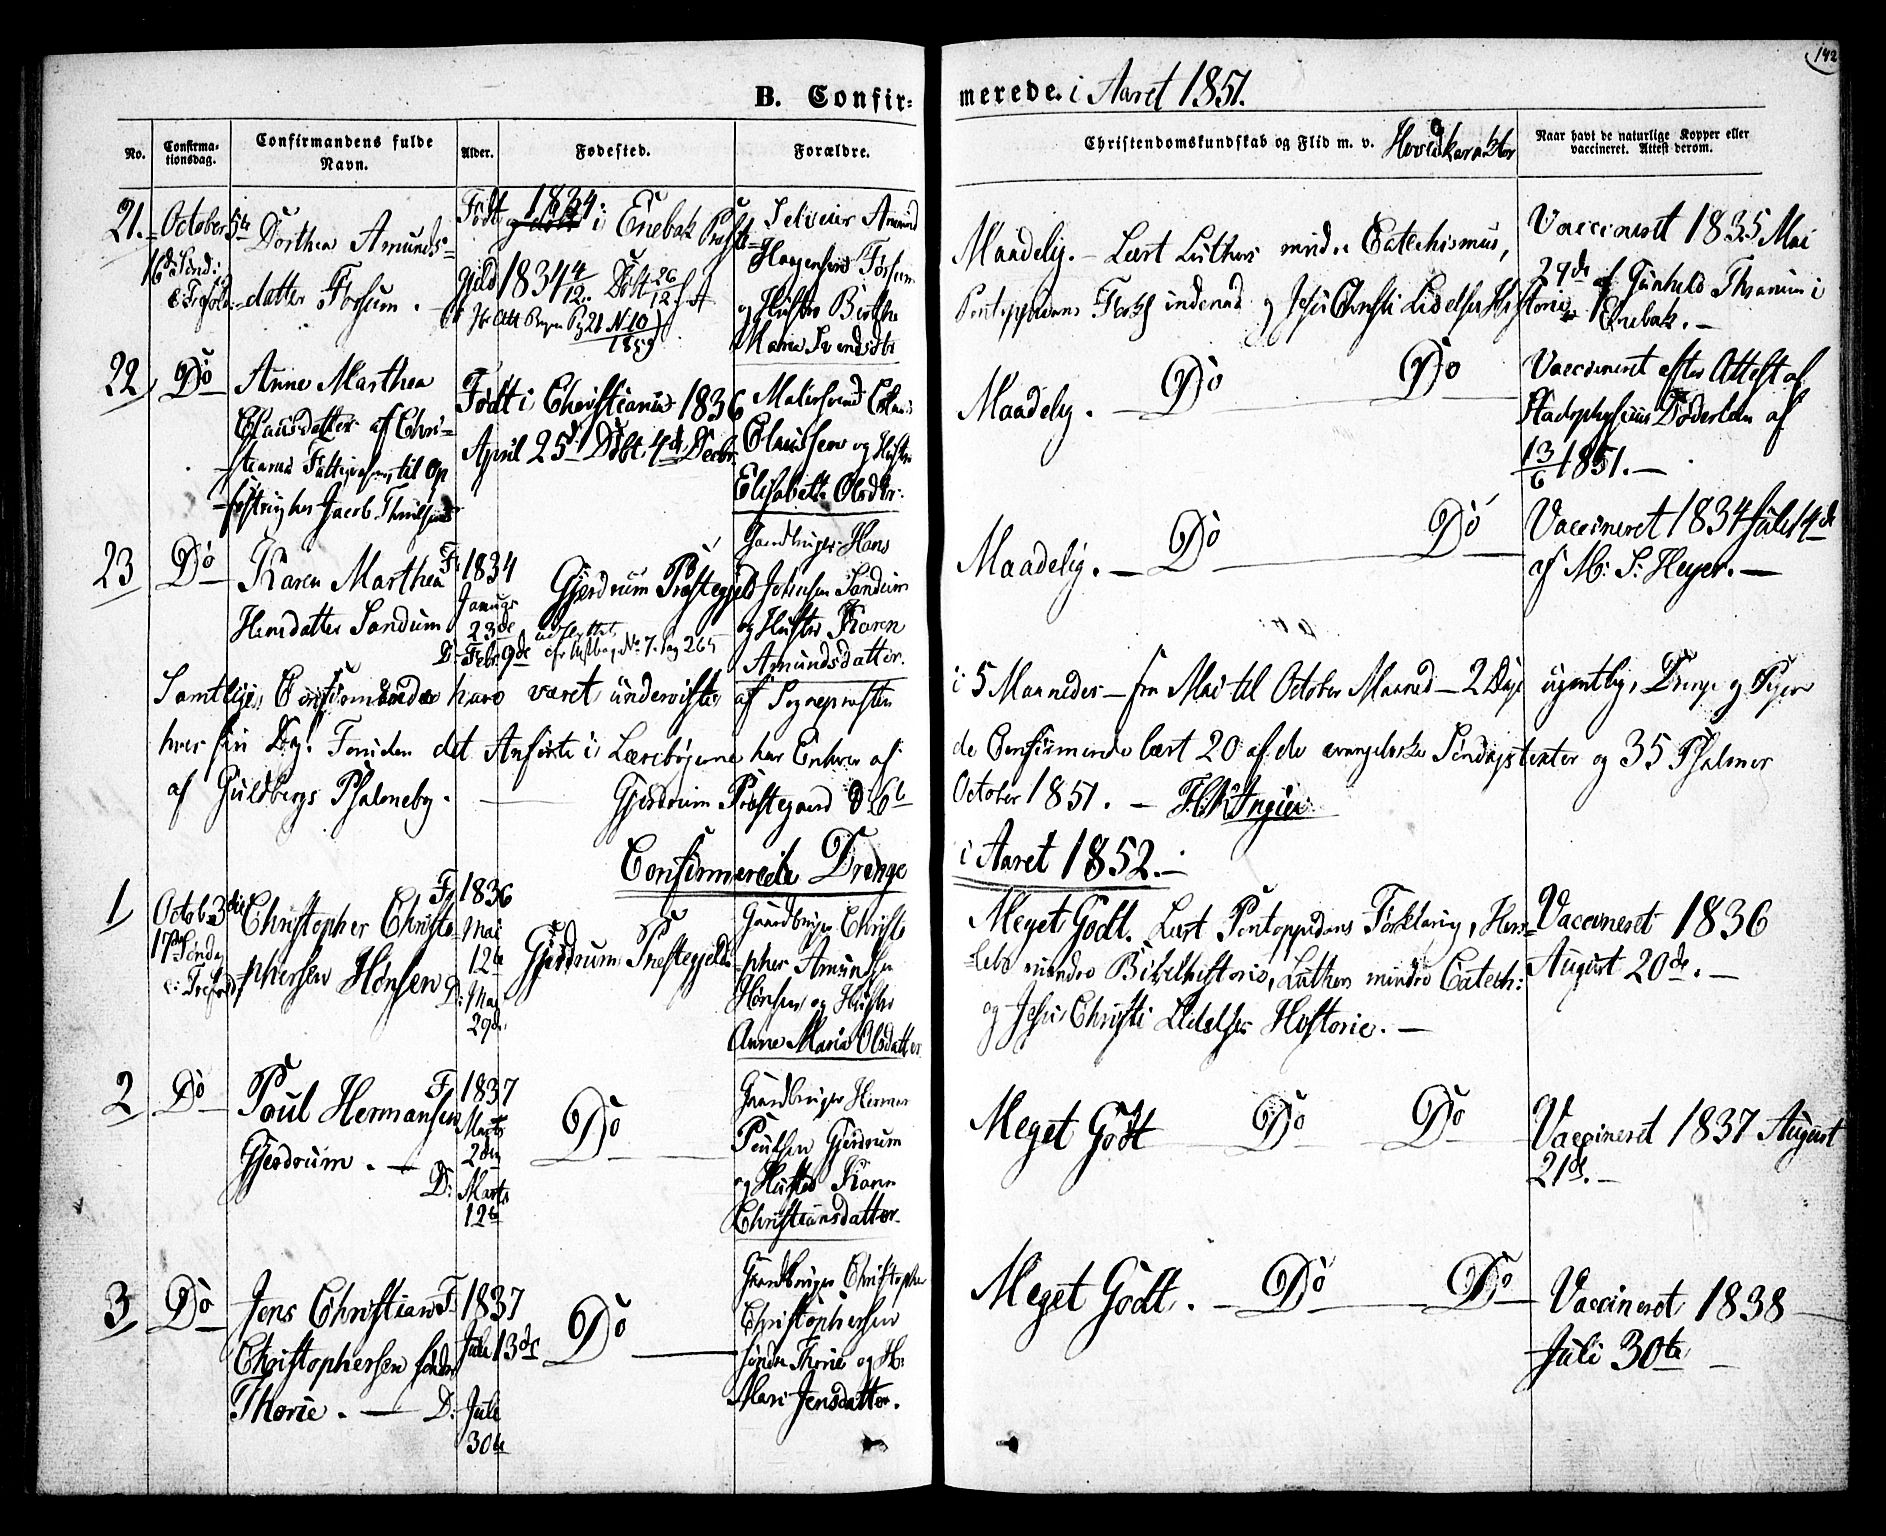 142
B. Confirmerede i Aaret 1851.
No.
Confirma-
tionsdag.
Confirmandens fulde
Navn.
Alder.
Fødested.
Forældre.
Christendomskundskab og Flid m. v.
Naar havt de naturlige Kopper eller
vaccineret. Attest derom.
21.
October 5te
16d Sønd:
e: Trefold:
Dorthea Amunds-
datter Fossum.
Født 1834 i Enebak Præste-
gjeld 1834 4/12. Døbt 26/12.
N 10
1859
Selveier Amund
og Hustru Birthe
Maria
Maadelig. – Lært Luthers mindre Catechismus,
Pontoppidans og Jesu Christi Lidelses Historie
Vaccineret 1835 Mai
29de af Gunhild
Enebak. –
22
Do
Anne Marthea
Clausdatter af Chri-
til Op
hos Jacob
Født i Christiania 1836
April 25d Døbt 4d Decbr.
Claussen og Hustru
Elisabeth Olsdtr.
Maadelig. – Do Do
Vaccineret efter Attest af
Stadsphysicus Døderlein af
13/6 1851. –
23
Do
Karen Marthea
Hansdatter Sandum
F: 1834
Januar
23de
D: Febr. 9de
Gjerdrum Præstegjeld
udflyttet
No 7. Pag 265
Gaardbruger Hans
Johnsen Sandum
og Hustru Karen
Amundsdatter.
Maadelig. – Do Do
Vaccineret 1834 Juli 14de
af M: S: Heyer. –
Samtlige Confirmander have været underviste af Sognepræsten i 5 Maaneder – fra Mai til October Maaned – 2 Dage ugentlig, Drenge og Piger
hver sin Dag. Foruden det Anførte i Lærebøgerne har Enhver af de Confirmerede lært 20 af de evangeliske Søndagstexter og 35 Psalmer
af Guldbergs Psalmebog. – Gjerdrum Præstegaard d. 6te October 1851. –
Confirmerede Drenge i Aaret 1852. –
1
Octob. 3die
17de Søndag
e: Trefold:
Christopher Christo-
phersen Hønsen
F: 1836
Mai
12te
D: Mai
29de
Gjerdrum Præstegjeld
Gaardbruger Christo-
pher Amundsen
Hønsen og Hustru
Anne Maria Olsdatter
Meget Godt. Lært Pontoppidans Forklaring, Hers-
lebs mindre Bibelhistorie, Luthers mindre Catech:
og Jesu Christi Lidelses Historie. –
Vaccineret 1836
August 20de. –
2
Do
Poul Hermansen
Gjerdrum. –
F: 1837
Marts
2den
D: Marts
12te
Do
Gaardbruger Herman
Poulsen Gjerdrum
og Hustru Karen
Christiansdatter.
Meget Godt Do Do
Vaccineret 1837 August
21de. –
3
Do
Jens Christian
Christophersen søndre
Thorie. –
F: 1837
Juli 13de
D: Juli
30te
Do
Gaardbruger Christopher
Christophersen
søndre Thorie og H:
Mari Jensdatter.
Meget Godt. – Do Do
Vaccineret 1838
Juli 30te –